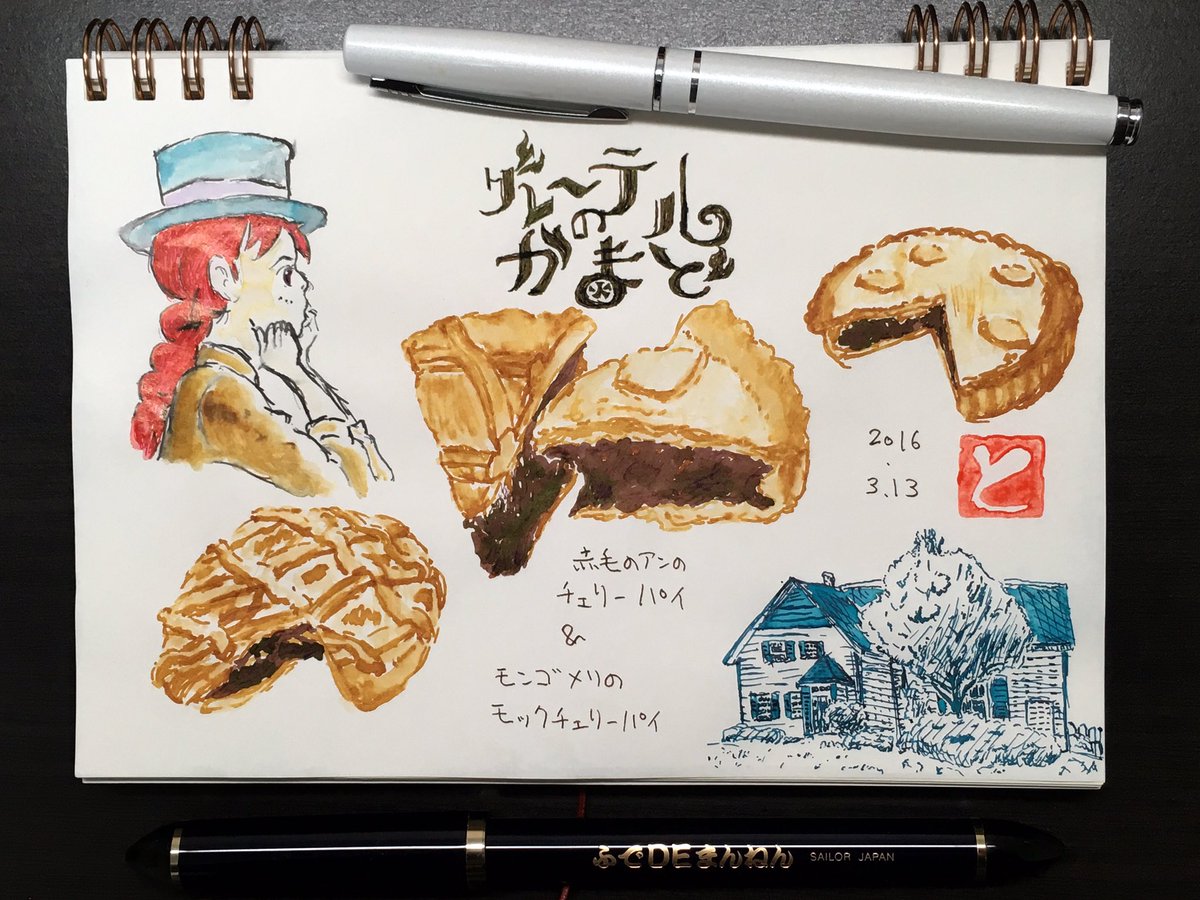 グレーテル
の
かまど
2016
.
3.13
と
赤毛のアンの
チェリーパイ
&
モンゴメリの
モックチェリーパイ
ふでDEまんねん SAILOR JAPAN